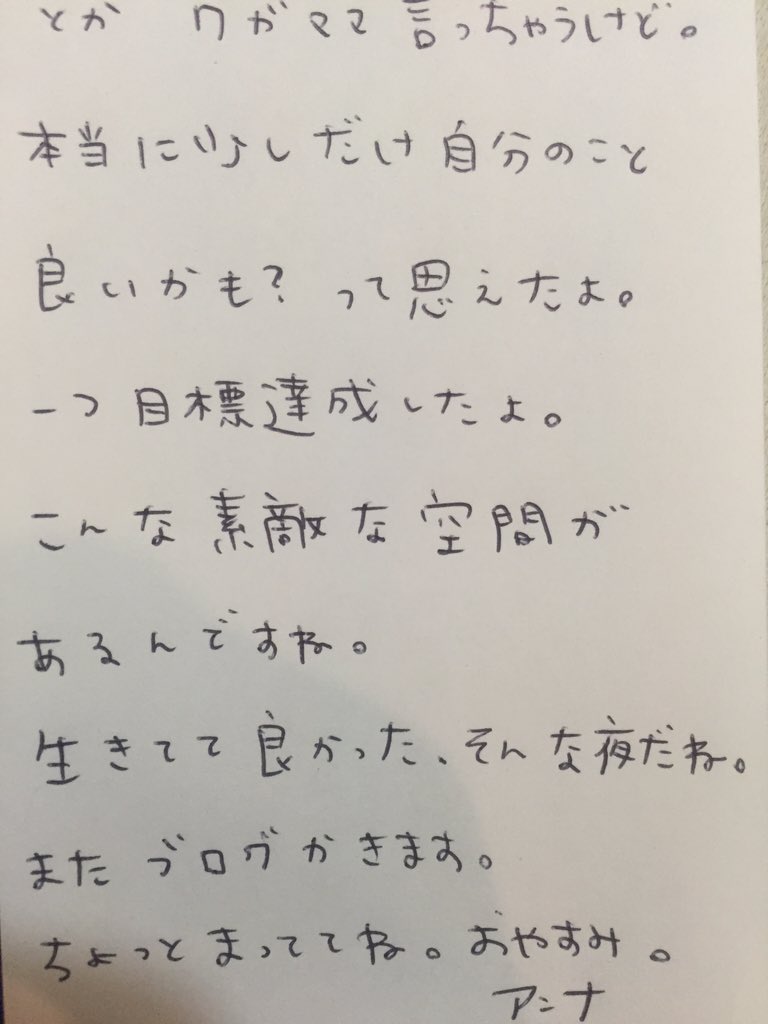 とか ワガママ 言っちゃうけど。
本当に少しだけ自分のこと
良いかも？って思えたよ。
一つ目標達成したよ。
こんな素敵な空間が
あるんですね。
生きてて良かった、そんな夜だね。
またブログかきます。
ちょっとまっててね。おやすみ。
アンナ